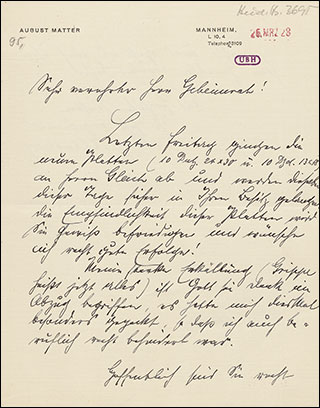 AUGUST MATTER
MANNHEIM,
L 10, 4
Telephon
25. MRZ 23
95,
UBH
Sehr verehrter Herr Geheimrat!
Letzten Freitag gingen die
neuen Platten (10 Dutz. 24x30 u. 10 Dtzd. 13x18
an Herrn Gleich ab und werden dieselben
dieser Tage sicher in Ihren Besitz gelangen
die Empfindlichkeit dieser Platten wird
Sie gewiss befriedigen und wünsche
ich recht gute Erfolge!
Meine starke Erkältung, (Grippe
heißt jetzt alles) ist Gott sei dank im
Abzug begriffen es hatte mich diesmal
besonders gepackt, so daß ich auch be-
ruflich recht behindert war.
Hoffentlich sind Sie recht